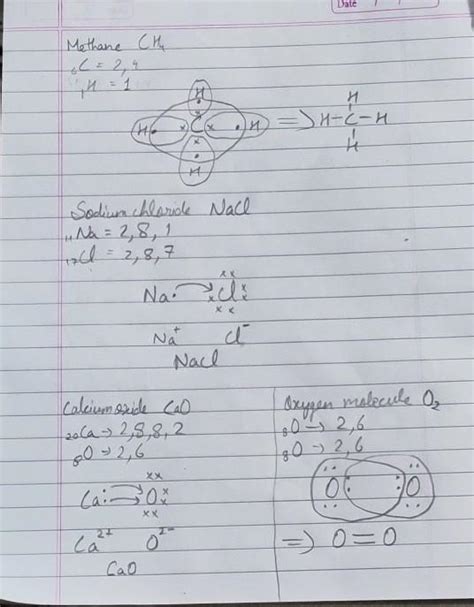 Date
Methane CH₄
₆C = 2,4
₁H = 1
H
H C H => H-C-H
H
H
H
Sodium chloride NaCl
₁₁Na = 2,8,1
₁₇Cl = 2,8,7
Na· Cl
Na⁺ Cl⁻
NaCl
Calcium oxide CaO
₂₀Ca → 2,8,8,2
₈O → 2,6
Ca: O
Ca²⁺ O²⁻
CaO
Oxygen molecule O₂
₈O → 2,6
₈O → 2,6
O O
=> O=O